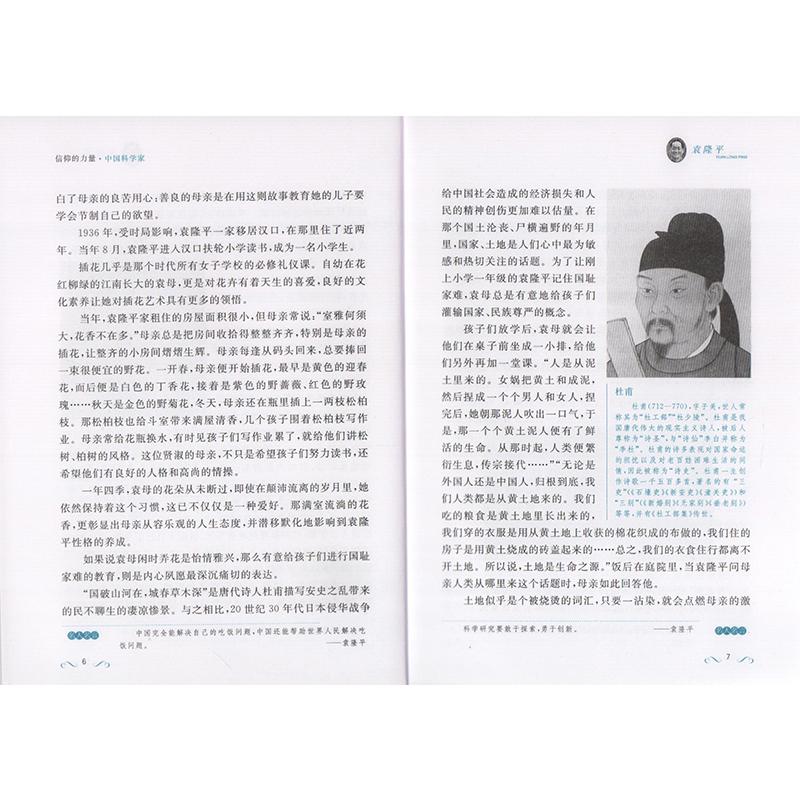 信仰的力量·中国科学家
白了母亲的良苦用心：善良的母亲是在用这则故事教育她的儿子要
学会节制自己的欲望。
1936 年，受时局影响，袁隆平一家移居汉口，在那里住了近两
年。当年 8 月，袁隆平进入汉口扶轮小学读书，成为一名小学生。
插花几乎是那个时代所有女子学校的必修礼仪课。自幼在花
红柳绿的江南长大的袁母，更是对花卉有着天生的喜爱，良好的文
化素养让她对插花艺术具有更多的领悟。
当年，袁隆平家租住的房屋面积很小，但母亲常说：“室雅何须
大，花香不在多。”母亲总是把房间收拾得整整齐齐，特别是母亲的
插花，让整齐的小房间熠熠生辉。母亲每逢从码头回来，总要捧回
一束很便宜的野花。一开春，母亲便开始插花，最早是黄色的迎春
花，而后便是白色的丁香花，接着是紫色的野蔷薇、红色的野玫
瑰……秋天是金色的野菊花，冬天，母亲还在瓶里插上一两枝松柏
枝。那松柏枝也给斗室带来满屋清香，几个孩子围着松柏枝写作
业。母亲常给花瓶换水，有时见孩子们写作业累了，就给他们讲松
树、柏树的风格。这位贤淑的母亲，不只是希望孩子们努力读书，还
希望他们有良好的人格和高尚的情操。
一年四季，袁母的花朵从未断过，即使在颠沛流离的岁月里，她
依然保持着这个习惯，这已不仅仅是一种爱好。那满室流淌的花
香，更彰显出母亲从容乐观的人生态度，并潜移默化地影响到袁隆
平性格的养成。
如果说袁母闲时弄花是怡情雅兴，那么有意给孩子们进行国耻
家难的教育，则是内心夙愿最深沉痛切的表达。
“国破山河在，城春草木深”是唐代诗人杜甫描写安史之乱带来
的民不聊生的凄凉惨景。与之相比，20 世纪 30 年代日本侵华战争
名人名言
中国完全能解决自己的吃饭问题，中国还能帮助世界人民解决吃
饭问题。
——袁隆平
6
袁隆平
YUAN LONG PING
给中国社会造成的经济损失和人
民的精神创伤更加难以估量。在
那个国土沦丧、尸横遍野的年月
里，国家、土地是人们心中最为敏
感和热切关注的话题。为了让刚
上小学一年级的袁隆平记住国耻
家难，袁母总是有意地给孩子们
灌输国家、民族尊严的概念。
孩子们放学后，袁母就会让
他们在桌子前坐成一小排，给他
们另外再加一堂课。“人是从泥
土里来的。女娲把黄土和成泥，
然后捏成一个个男人和女人，捏
完后，她朝那泥人吹出一口气，于
是，那一个个黄土泥人便有了鲜
活的生命。从那时起，人类便繁
衍生息，传宗接代……”“无论是
外国人还是中国人，归根到底，我
们人类都是从黄土地来的。我们
吃的粮食是黄土地里长出来的，
我们穿的衣服是用从黄土地上收获的棉花织成的布做的，我们住的
房子是用黄土烧成的砖盖起来的……总之，我们的衣食住行都离不
开土地。所以说，土地是生命之源。”饭后在庭院里，当袁隆平问母
亲人类从哪里来这个话题时，母亲如此回答他。
土地似乎是个被烧烫的词汇，只要一沾染，就会点燃母亲的激
杜甫
杜甫(712—770)，字子美，世人常
称其为“杜工部”“杜少陵”。杜甫是我
国唐代伟大的现实主义诗人，被后人
尊称为“诗圣”，与“诗仙”李白并称为
“李杜”。杜甫的诗多表现对国家命运
的担忧以及对老百姓困难生活的同
情，因此被称为“诗史”。杜甫一生创
作诗歌一千五百多首，著名的有“三
吏”(《石壕吏》《新安吏》《潼关吏》)和
“三别”(《新婚别》《无家别》《垂老别》)
等等，并有《杜工部集》传世。
科学研究要敢于探索，勇于创新。
——袁隆平
名人名言
7